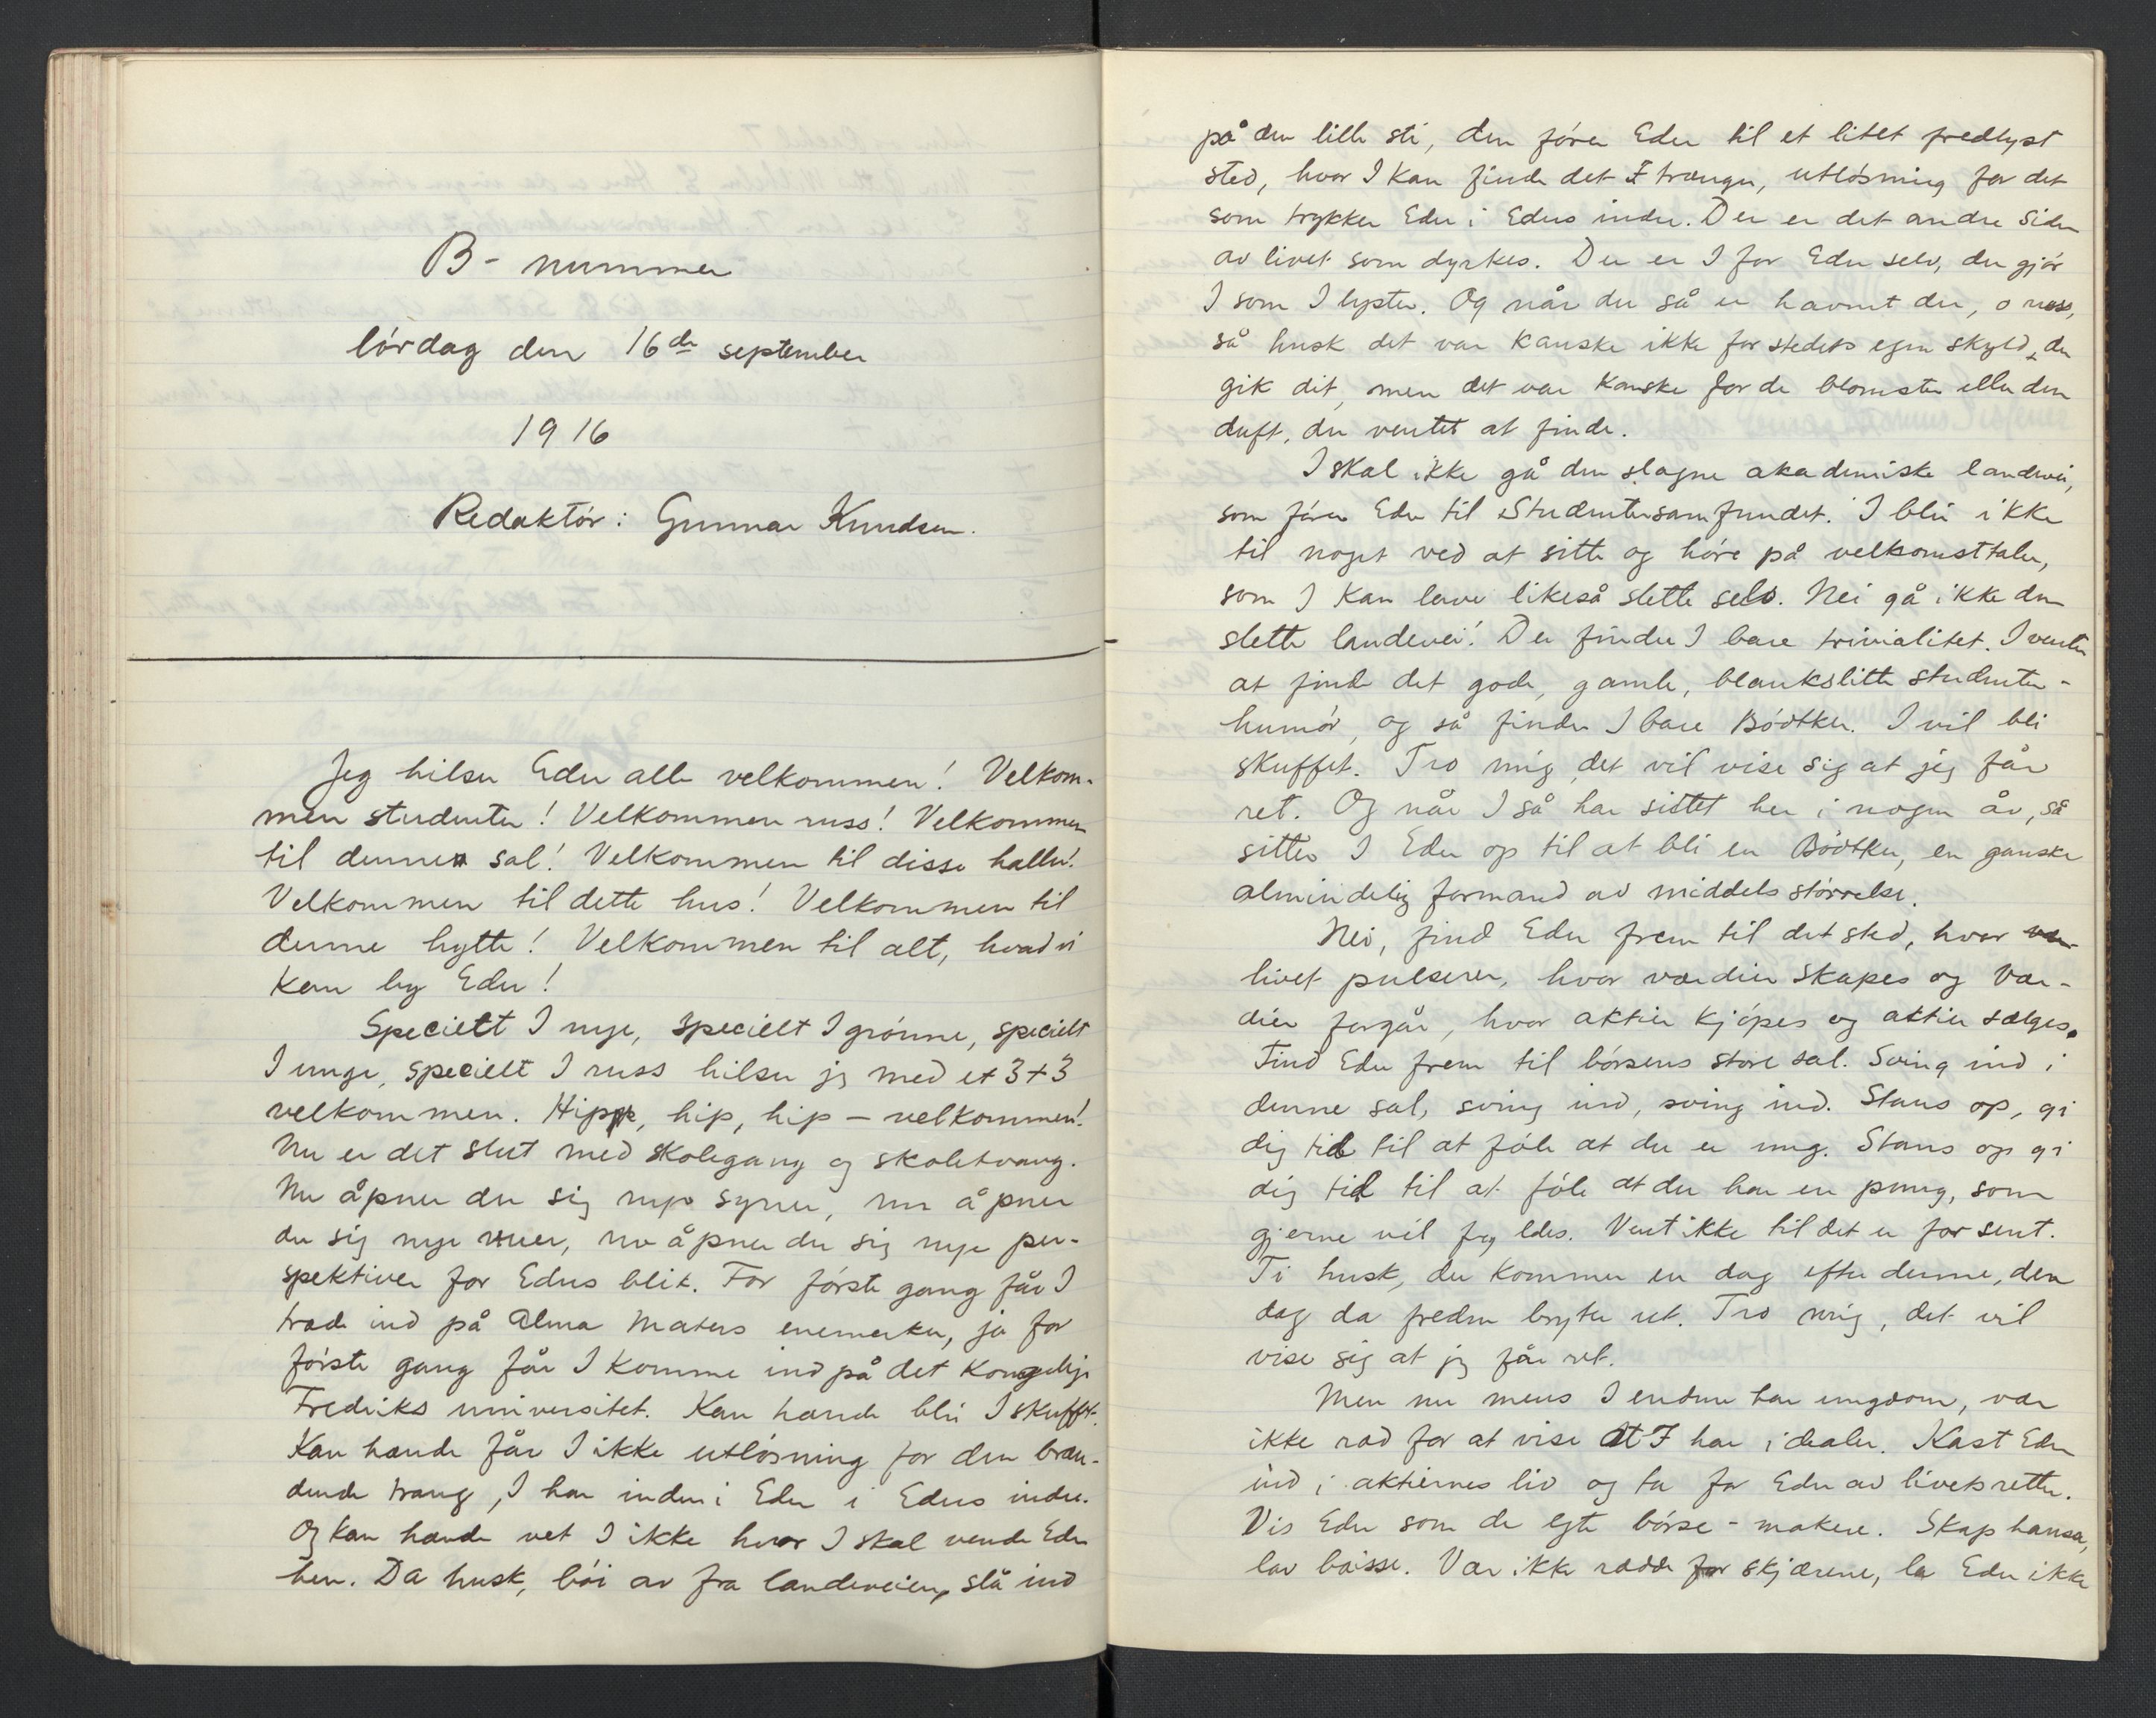 B- nummer
lördag den 16de september
1916
Redaktör: Gunnar Knudsen.
Jeg hilser Eder alle velkommen! Velkom-
men studenter! Velkommen russ! Velkommen
til denne sal! Velkommen til disse haller!
Velkommen til dette hus! Velkommen til
denne hytte! Velkommen til alt, hvad vi
kan by Eder!
Specielt I nye, specielt I grönne, specielt
I unge, specielt I russ hilser jeg med et 3+3
velkommen. Hipp, hip, hip - velkommen!
Nu er det slut med skolegang og skoletvang.
Nu åpner der sig nye syner, nu åpner
der sig nye vuer, nu åpner der sig nye per-
spektiver for Eders blik. For förste gang får I
træde ind på Alma Maters enemerker, ja for
förste gang får I komme ind på det Kongelige
Fredriks universitet. Kan hænde blir I skuffet.
Kan hænde får I ikke utlösning for den bræn-
dende trang, I har inden i Eder i Eders indre.
Og kan hænde vet I ikke hvor I skal vende Eder
hen. Da husk, böi av fra landeveien, slå ind
på den lille sti, den förer Eder til et litet fredlyst
sted, hvor I kan finde det I trænger, utlösning for det
som trykker Eder i Eders indre. Der er det andre sider
av livet som dyrkes. Der er I for Eder selv, der gjör
I som I lyster. Og når du så er havnet der, o russ,
så husk det var kanske ikke for stedets egen skyld, du
gik dit, men det var kanske for de blomster eller den
duft, du ventet at finde.
I skal ikke gå den slagne akademiske landevei,
som förer Eder til Studentersamfundet. I blir ikke
til noget ved at sitte og höre på velkomsttaler,
som I kan lave likeså slette selv. Nei gå ikke den
slette landevei! Der finder I bare trivialitet. I venter
at finde det gode, gamle, blankslitte studenter-
humör, og så finder I bare Bödtker. I vil bli
skuffet. Tro mig det vil vise sig at jeg får
ret. Og når I så har sittet her i nogen år, så
sitter I Eder op til at bli en Bödtker, en ganske
almindelig formand av middels störrelse.
Nei, find Eder frem til det sted, hvor
livet pulserer, hvor værdier skapes og vær-
dier forgår, hvor aktier kjöpes og aktier sælges.
Find Eder frem til börsens store sal. Sving ind i
denne sal, sving ind, sving ind. Stans op, gi
dig tid til at föle at du er ung. Stans op gi
dig tid til at föle at du har en pung, som
gjerne vil fyldes. Vent ikke til det er for sent.
Ti husk, der kommer en dag efter denne, den
dag da freden bryter ut. Tro mig, det vil
vise sig at jeg får ret.
Men nu mens I endnu har ungdom, vær
ikke ræd for at vise at I har idealer. Kast Eder
ind i aktiernes liv og ta for Eder av livets retter.
Vis Eder som de egte börse-makere. Skap hausse,
lav baisse. Vær ikke rædde for skjærene, la Eder ikke